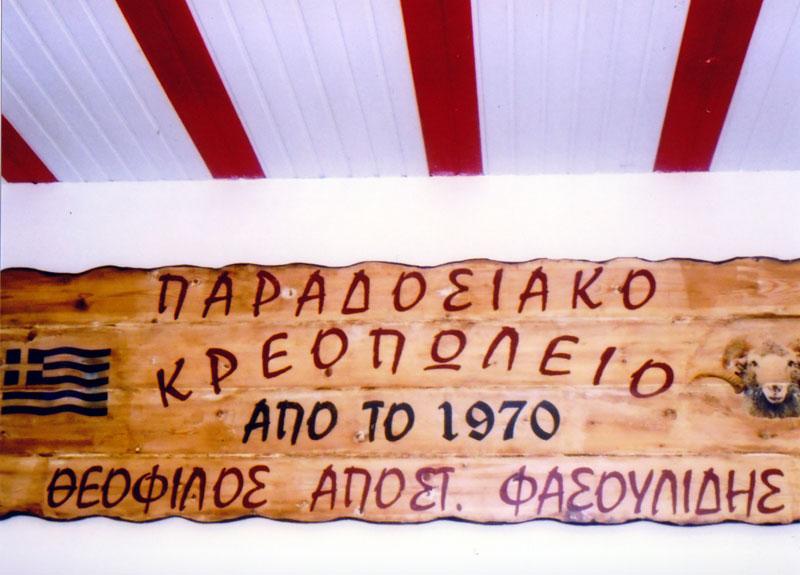 ΠΑΡΑΔΟΣΙΑΚΟ
ΚΡΕΟΠΩΛΕΙΟ
ΑΠΟ ΤΟ 1970
ΘΕΟΦΙΛΟΣ ΑΠΟΣΤ. ΦΑΣΟΥΛΙΔΗΣ